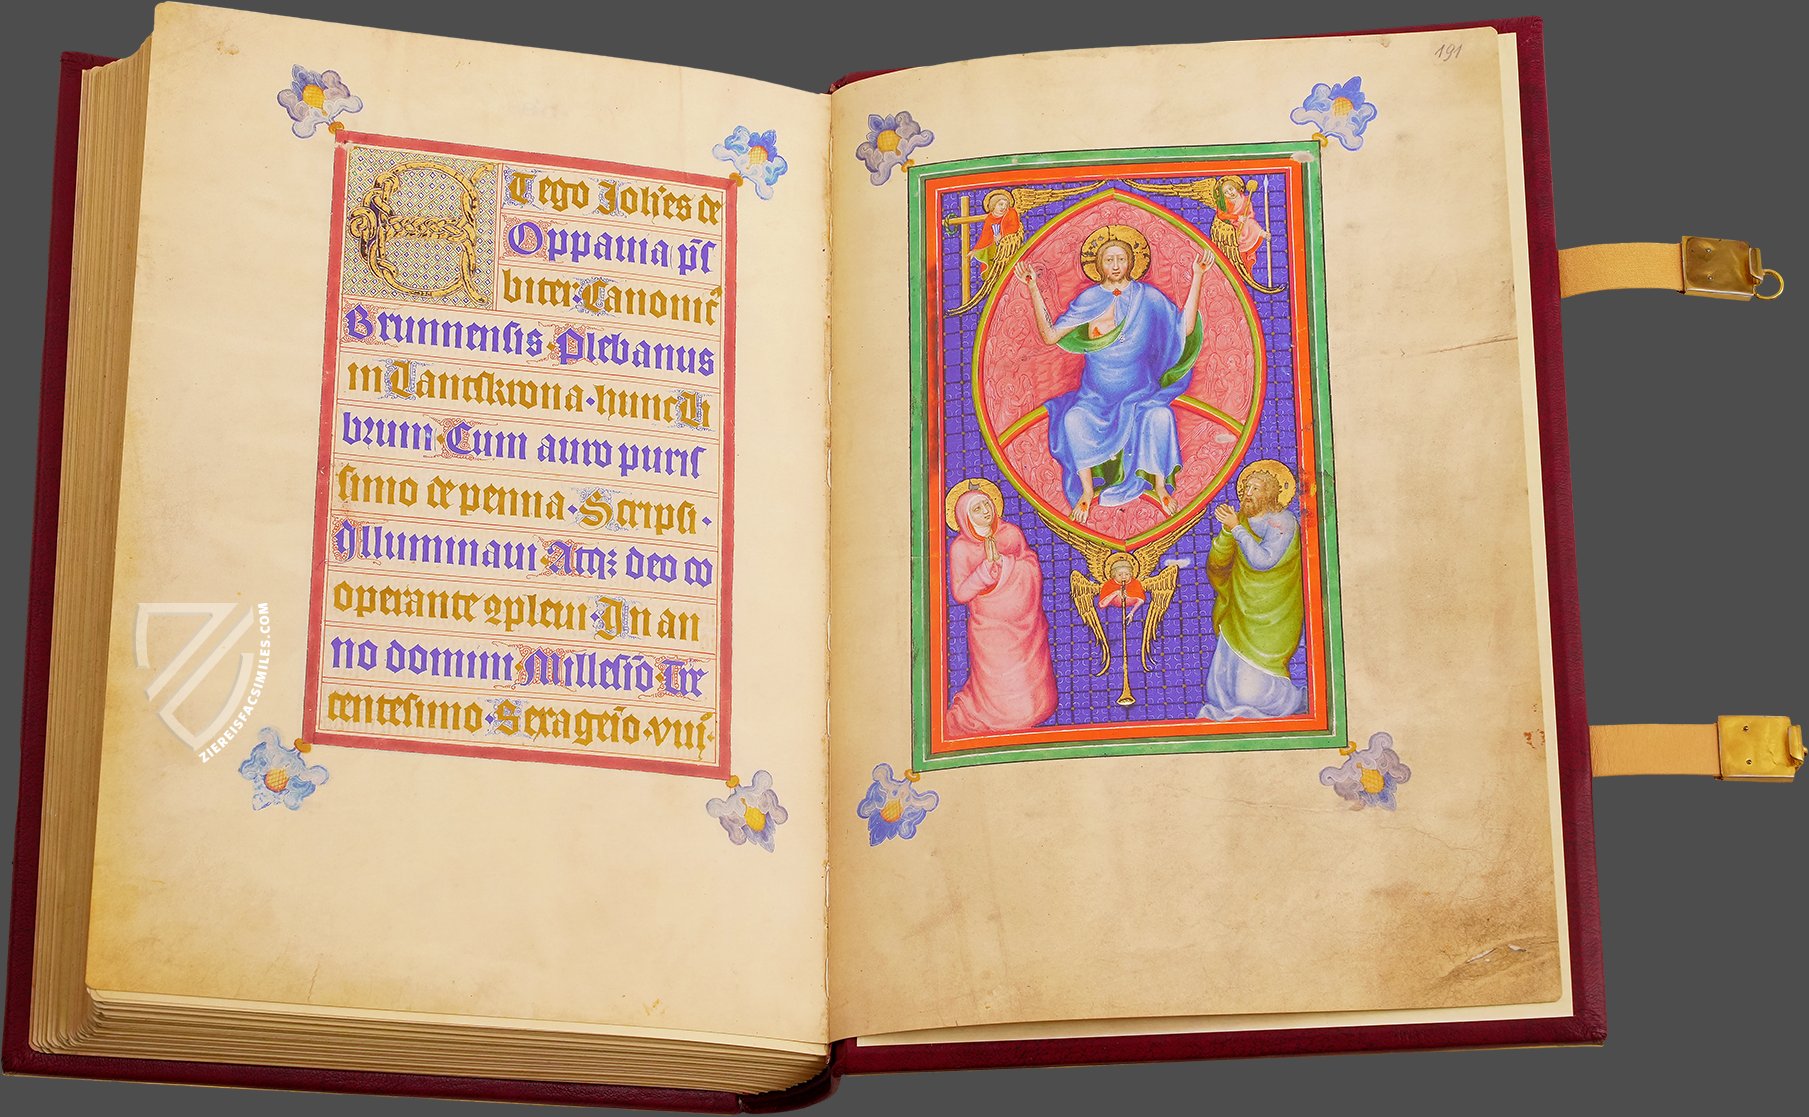 Et ego Joh̄es de
Oppauia p̄s
biter· Canonic̄
Brunnensis· Plebanus
in Lanczkrona· hunc li
brum· Cum auro puris
simo de penna· Scripsi·
Illuminaui· Atqꝫ deo co
operante ꝯpleui· In an
no domini· Millesīo· Tre
centesimo· Sexagesīo· viii·
191
ZIEREISFACSIMILES.COM